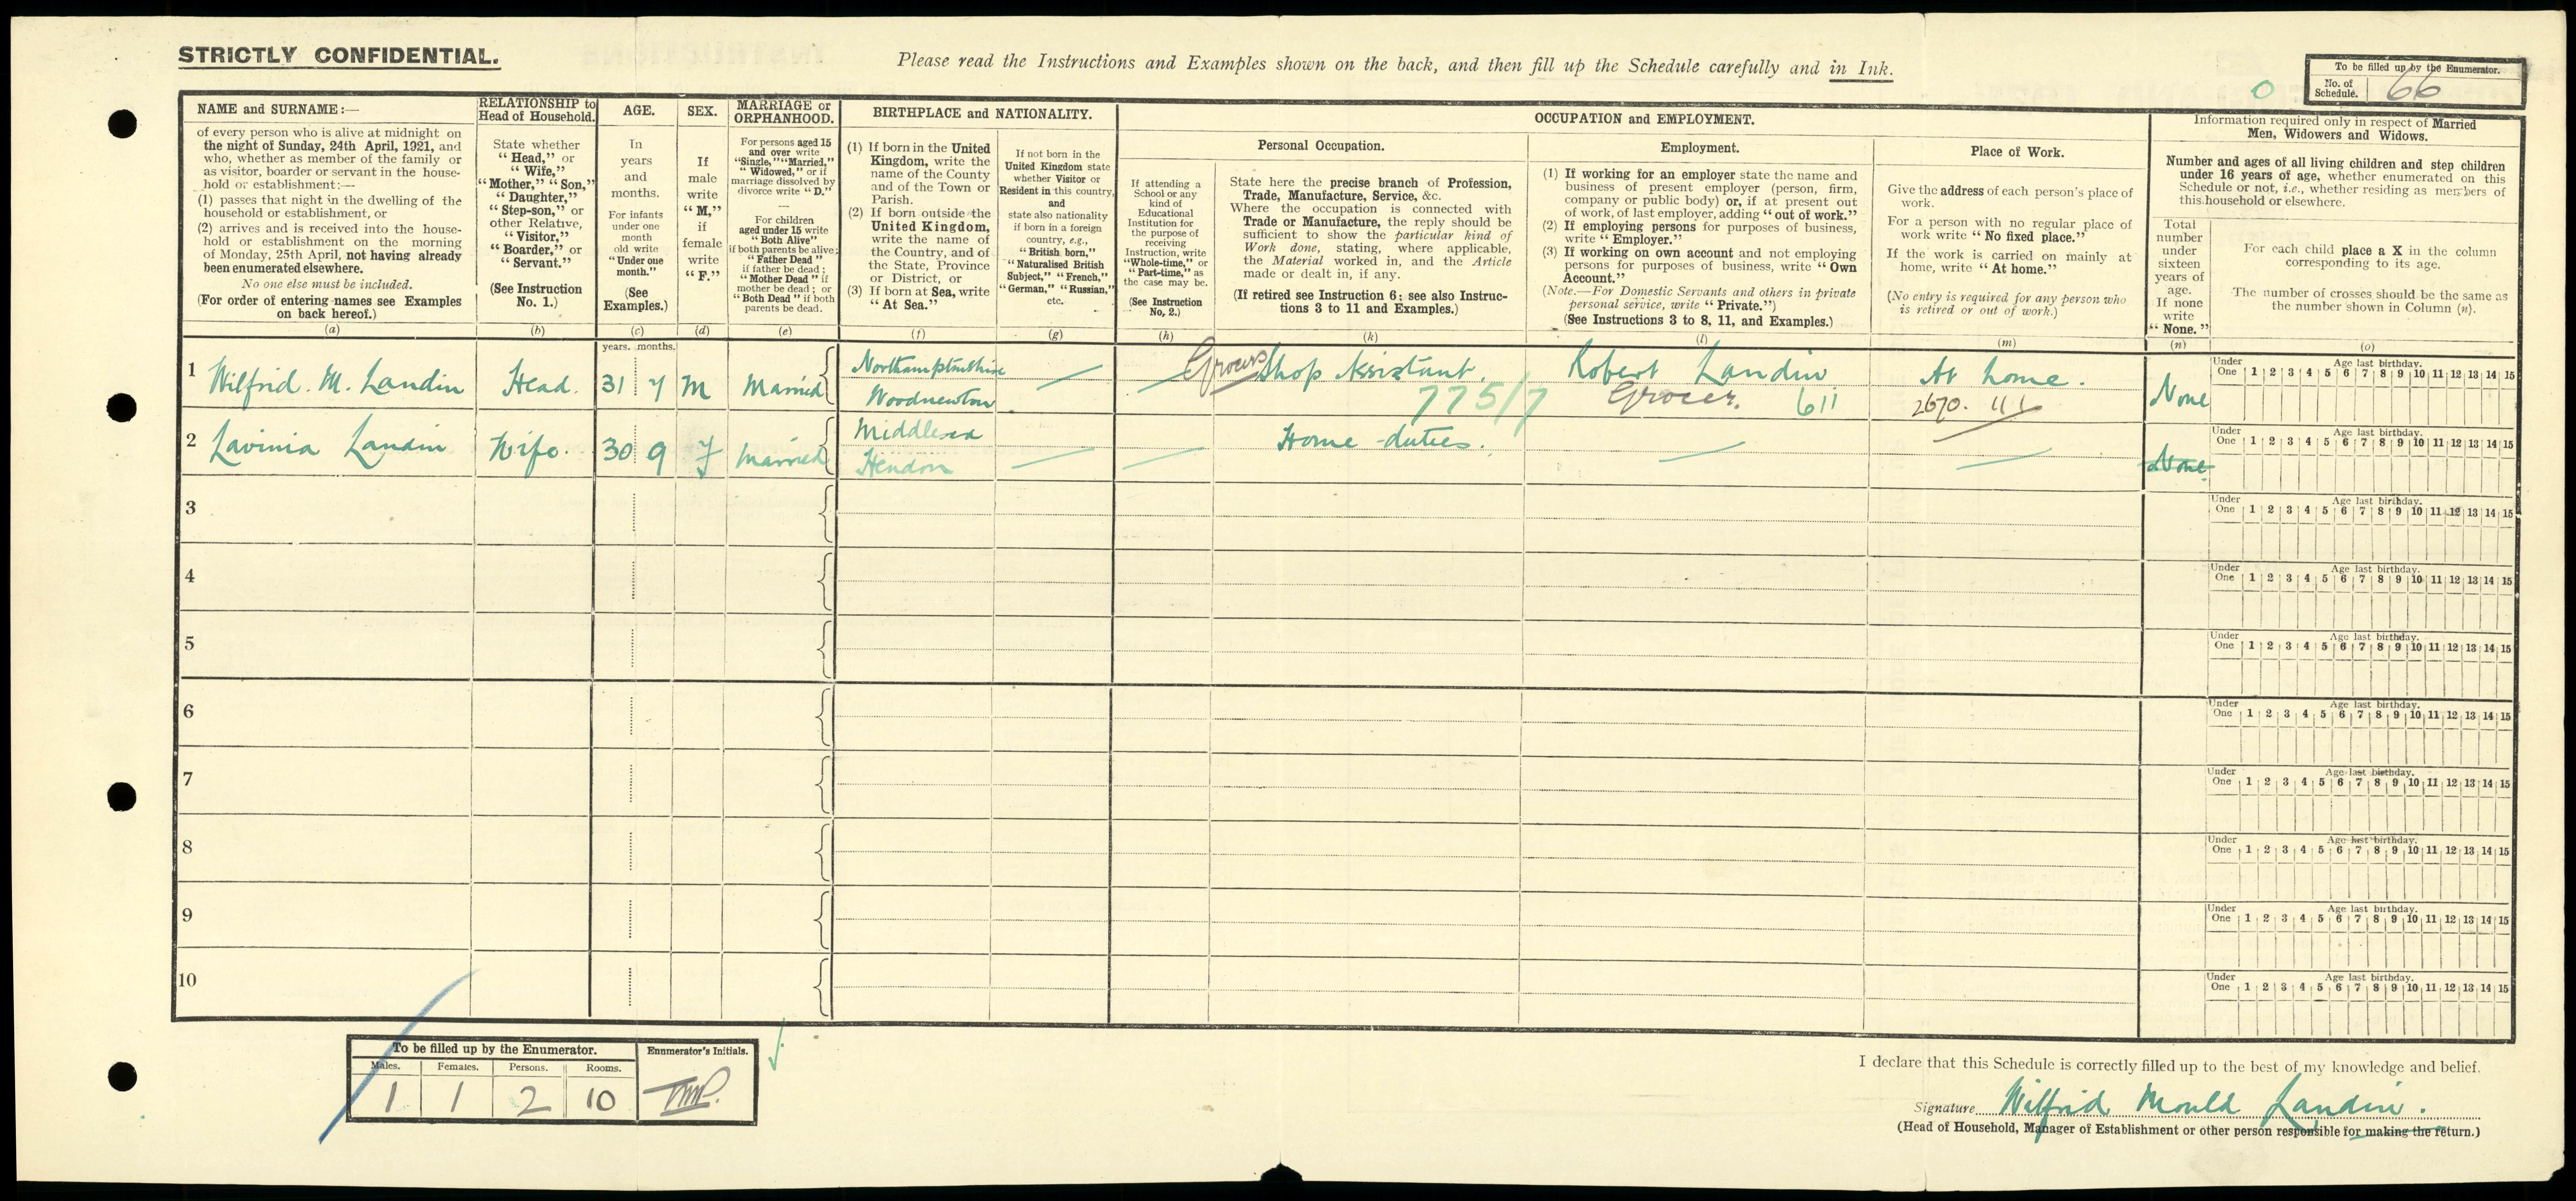 STRICTLY CONFIDENTIAL.
Please read the Instructions and Examples shown on the back, and then fill up the Schedule carefully and in Ink.
0
To be filled up by the Enumerator.
No. of Schedule. 66
NAME and SURNAME:—
of every person who is alive at midnight on
the night of Sunday, 24th April, 1921, and
who, whether as member of the family or
as visitor, boarder or servant in the house-
hold or establishment:—
(1) passes that night in the dwelling of the
household or establishment, or
(2) arrives and is received into the house-
hold or establishment on the morning
of Monday, 25th April, not having already
been enumerated elsewhere.
No one else must be included.
(For order of entering names see Examples
on back hereof.)
(a)
RELATIONSHIP to
Head of Household.
State whether
"Head," or
"Wife,"
"Mother," "Son,"
"Daughter,"
"Step-son," or
other Relative,
"Visitor,"
"Boarder," or
"Servant."
(See Instruction
No. 1.)
(b)
AGE.
In
years
and
months.
For infants
under one
month
old write
"Under one
month."
(See
Examples.)
(c)
SEX.
If
male
write
"M,"
if
female
write
"F."
(d)
MARRIAGE or
ORPHANHOOD.
For persons aged 15
and over write
"Single," "Married,"
"Widowed," or if
marriage dissolved by
divorce write "D."
—
For children
aged under 15 write
"Both Alive"
if both parents be alive;
"Father Dead"
if father be dead;
"Mother Dead" if
mother be dead; or
"Both Dead" if both
parents be dead.
(e)
BIRTHPLACE and NATIONALITY.
(1) If born in the United
Kingdom, write the
name of the County
and of the Town or
Parish.
(2) If born outside the
United Kingdom,
write the name of
the Country, and of
the State, Province
or District, or
(3) If born at Sea, write
"At Sea."
(f)
If not born in the
United Kingdom state
whether Visitor or
Resident in this country,
and
state also nationality
if born in a foreign
country, e.g.,
"British born,"
"Naturalised British
Subject," "French,"
"German," "Russian,"
etc.
(g)
OCCUPATION and EMPLOYMENT.
Personal Occupation.
If attending a
School or any
kind of
Educational
Institution for
the purpose of
receiving
Instruction, write
"Whole-time," or
"Part-time," as
the case may be.
(See Instruction
No. 2.)
(h)
State here the precise branch of Profession,
Trade, Manufacture, Service, &c.
Where the occupation is connected with
Trade or Manufacture, the reply should be
sufficient to show the particular kind of
Work done, stating, where applicable,
the Material worked in, and the Article
made or dealt in, if any.
(If retired see Instruction 6; see also Instruc-
tions 3 to 11 and Examples.)
(k)
Employment.
(1) If working for an employer state the name and
business of present employer (person, firm,
company or public body) or, if at present out
of work, of last employer, adding "out of work."
(2) If employing persons for purposes of business,
write "Employer."
(3) If working on own account and not employing
persons for purposes of business, write "Own
Account."
(Note.—For Domestic Servants and others in private
personal service, write "Private.")
(See Instructions 3 to 8, 11, and Examples.)
(l)
Place of Work.
Give the address of each person's place of
work.
For a person with no regular place of
work write "No fixed place."
If the work is carried on mainly at
home, write "At home."
(No entry is required for any person who
is retired or out of work.)
(m)
Information required only in respect of Married
Men, Widowers and Widows.
Number and ages of all living children and step children
under 16 years of age, whether enumerated on this
Schedule or not, i.e., whether residing as members of
this household or elsewhere.
Total
number
under
sixteen
years of
age.
If none
write
"None."
(n)
For each child place a X in the column
corresponding to its age.
The number of crosses should be the same as
the number shown in Column (n).
(o)
years. months.
1 Wilfrid. M. Landin Head. 31 7 M Married Northamptonshire Woodnewton — — Grocers Shop Assistant. 775/7 Robert Landin Grocer. 611 At home. 2670. 111 None
Under One Age last birthday. 1 2 3 4 5 6 7 8 9 10 11 12 13 14 15
2 Lavinia Landin Wife. 30 9 F Married Middlesex Hendon — — Home duties. — — None
Under One Age last birthday. 1 2 3 4 5 6 7 8 9 10 11 12 13 14 15
3 Under One Age last birthday. 1 2 3 4 5 6 7 8 9 10 11 12 13 14 15
4 Under One Age last birthday. 1 2 3 4 5 6 7 8 9 10 11 12 13 14 15
5 Under One Age last birthday. 1 2 3 4 5 6 7 8 9 10 11 12 13 14 15
6 Under One Age last birthday. 1 2 3 4 5 6 7 8 9 10 11 12 13 14 15
7 Under One Age last birthday. 1 2 3 4 5 6 7 8 9 10 11 12 13 14 15
8 Under One Age last birthday. 1 2 3 4 5 6 7 8 9 10 11 12 13 14 15
9 Under One Age last birthday. 1 2 3 4 5 6 7 8 9 10 11 12 13 14 15
10 Under One Age last birthday. 1 2 3 4 5 6 7 8 9 10 11 12 13 14 15
To be filled up by the Enumerator.
Males. Females. Persons. Rooms.
1 1 2 10
Enumerator's Initials.
I declare that this Schedule is correctly filled up to the best of my knowledge and belief.
Signature Wilfrid Mould Landin.
(Head of Household, Manager of Establishment or other person responsible for making the return.)